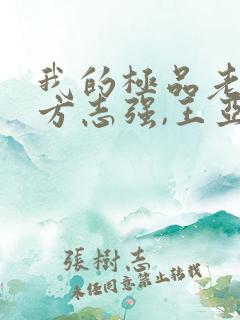 我的極品老
方志强,王亞
張樹志
未经同意禁止转载